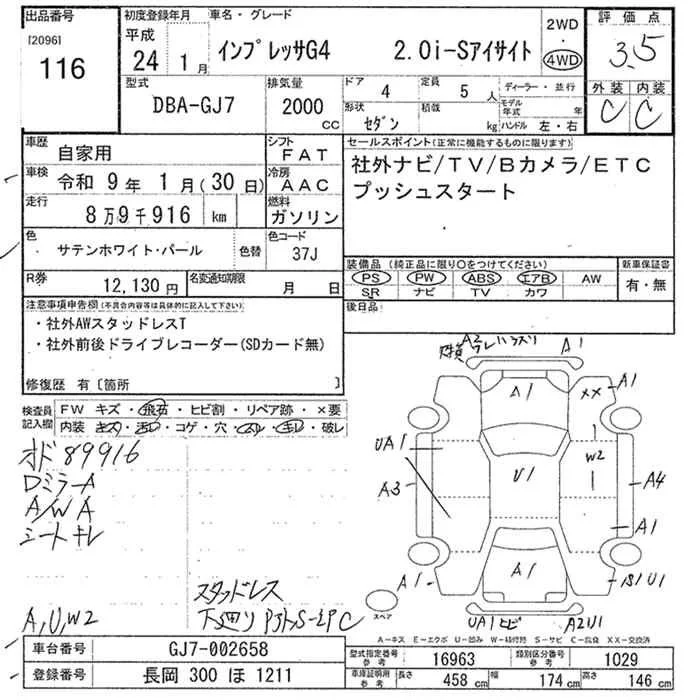 出品番号 初度登録年月 車名・グレード 2WD 評価点
[2096] 平成
116 24 1月 インプレッサG4 2.0i-Sアイサイト 4WD 3.5
型式 排気量 ドア 4 定員 5人 ディーラー・並行 外装 内装
DBA-GJ7 2000 CC 形状 セダン 積載 kg モデル年式 年 C C
ハンドル 左・右
車歴 自家用 シフト FAT セールスポイント(正常に機能するものに限ります)
車検 令和 9年 1月(30日) 冷房 AAC 社外ナビ/TV/Bカメラ/ETC
走行 8万9千916 km 燃料 ガソリン プッシュスタート
色 サテンホワイト・パール 色替 色コード 37J
装備品(純正品に限り○をつけてください) 新車保証書
R券 12,130円 名変通知期限 月 日 PS PW ABS エアB AW 有・無
SR ナビ TV カワ
注意事項申告欄(不具合内容等は具体的に記入して下さい) 後日品
・社外AWスタッドレスT
・社外前後ドライブレコーダー(SDカード無)
修復歴 有〔箇所 〕
検査員記入欄 FW キズ・飛石・ヒビ割・リペア跡・×要
内装 キズ・汚レ・コゲ・穴・スレ・キレ・破レ
A2 A1
A1 XX A1
オド 89916
ロミラーA
A/W A
シートキレ
UA1 W2
A3 U1 A4
A1
A1 A1 U1
スタッドレス
スペア
A,U,W2 UA1ヒビ A2U1
A-キズ E-エクボ U-凹み W-補修跡 S-サビ C-腐食 XX-交換済
車台番号 GJ7-002658 型式指定番号 参考 16963 類別区分番号 参考 1029
登録番号 長岡 300 ほ 1211 車庫証明用 参考 長さ 458 cm 幅 174 cm 高さ 146 cm